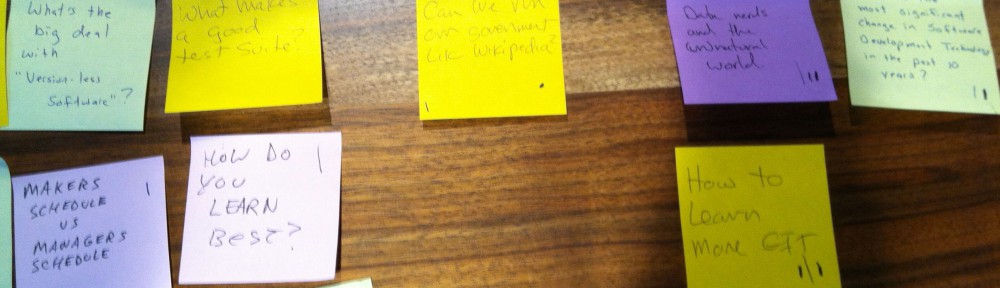 What's the
big deal
with
"Version-less
Software"?
What makes
a good
test suite?
Can we run
our government
like Wikipedia?
Data nerds
and the
unnatural
world
most significant
change in Software
Development Technology
in the past 10
years?
MAKERS
SCHEDULE
VS
MANAGERS
SCHEDULE
HOW DO
YOU
LEARN
BEST?
How to
Learn
More GIT